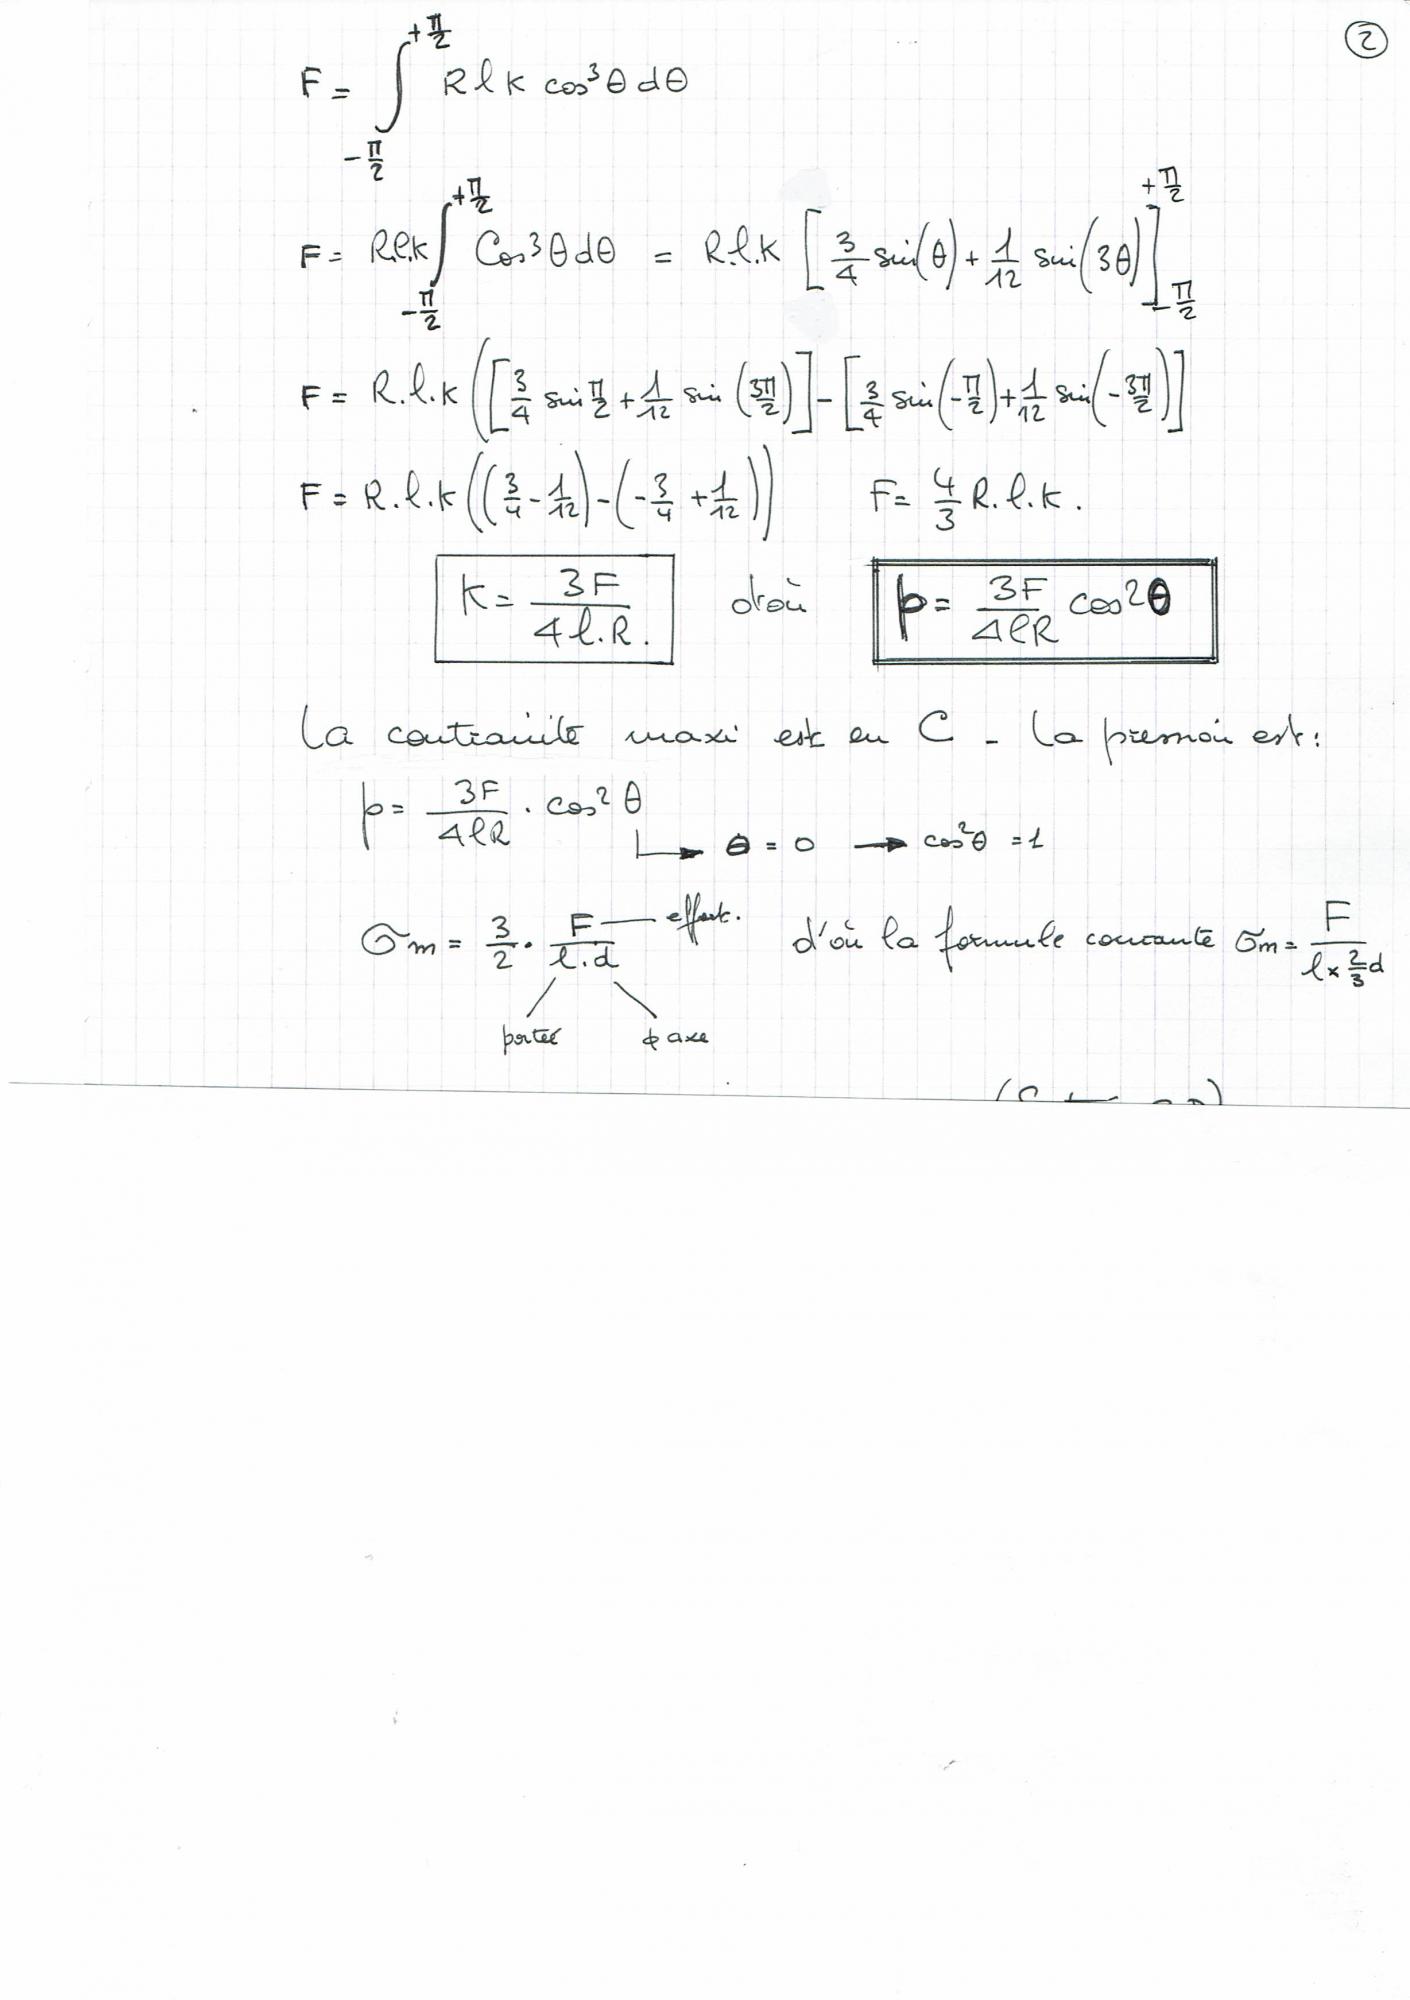 ②
F = ∫_{-π/2}^{+π/2} R l k cos³θ dθ
F = R.l.k ∫_{-π/2}^{+π/2} Cos³θ dθ = R.l.k [3/4 sin(θ) + 1/12 sin(3θ)]_{-π/2}^{+π/2}
F = R.l.k ([3/4 sin π/2 + 1/12 sin (3π/2)] - [3/4 sin(-π/2) + 1/12 sin(-3π/2)]
F = R.l.k ((3/4 - 1/12) - (-3/4 + 1/12)) F = 4/3 R.l.k.
k = 3F/4l.R. d'où p = 3F/4lR cos²θ
La contrainte maxi est en C - La pression est :
p = 3F/4lR . cos²θ
→ θ = 0 → cos²θ = 1
σm = 3/2 . F/l.d effort. d'où la formule courante σm = F/l×2/3d
portée ϕ axe